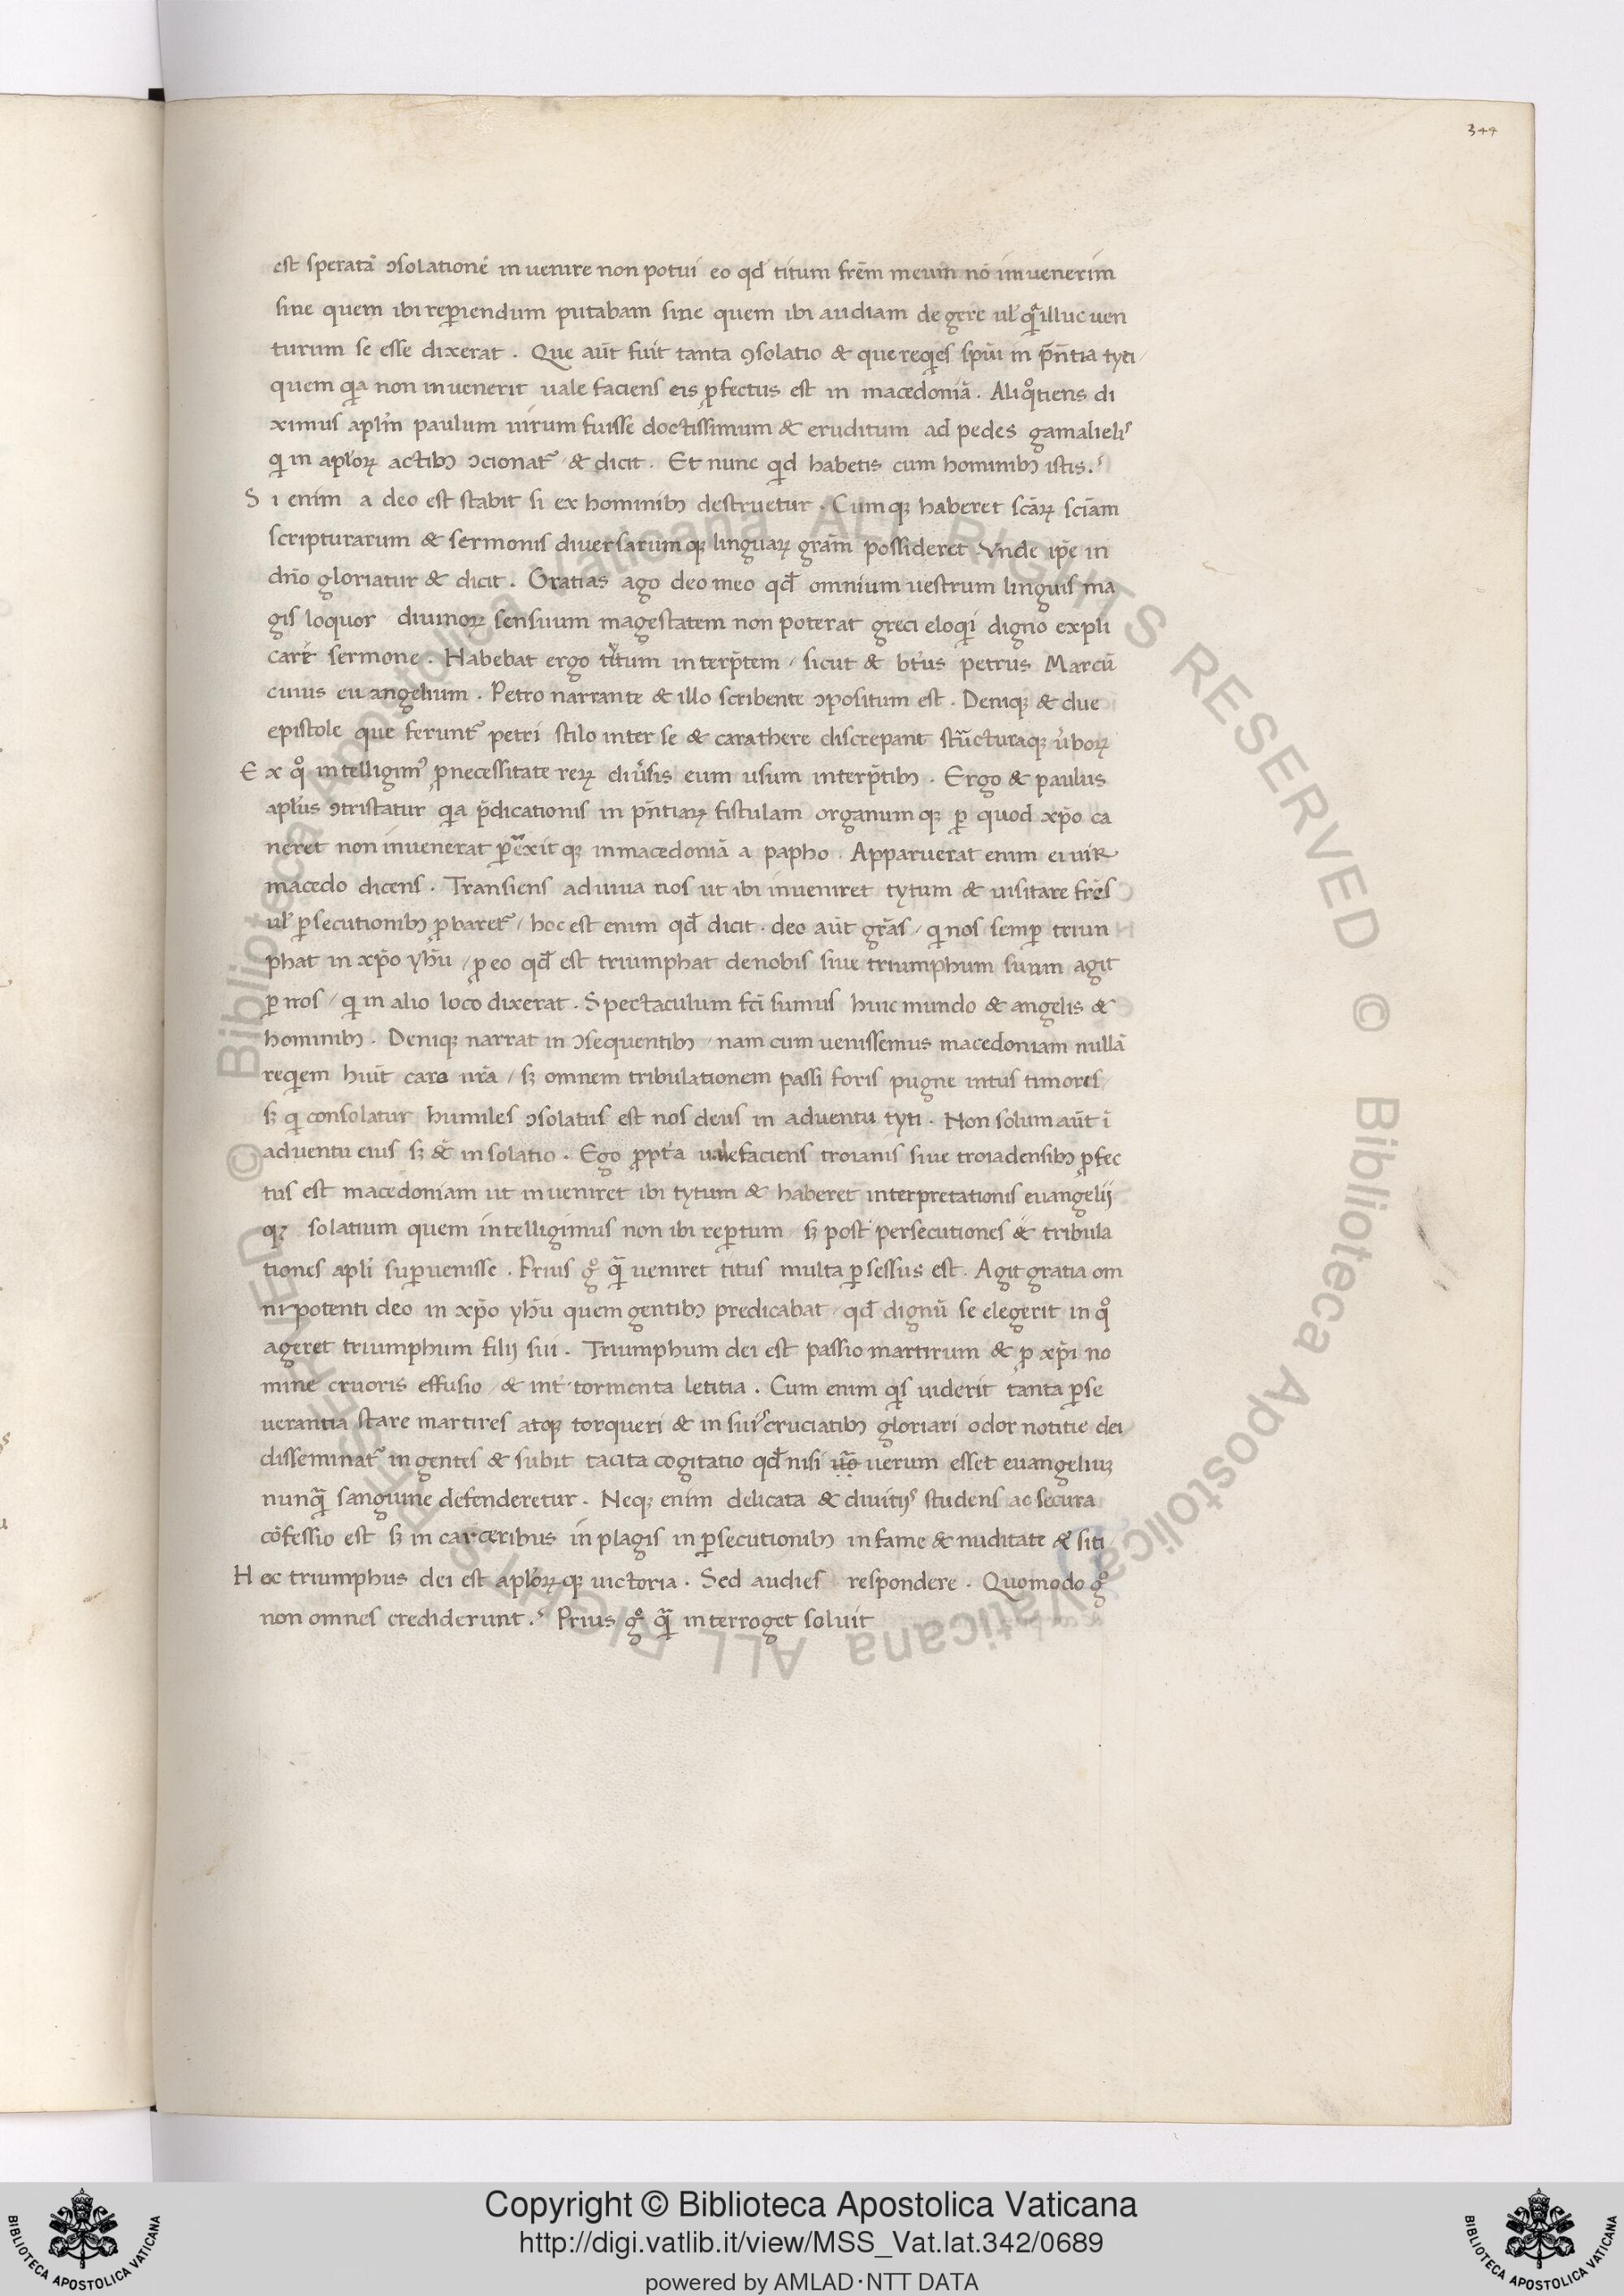 344
est speratā ↄsolationē invenire non potui eo qd titum frēm meum nō invenerim
sive quem ibi reꝑiendum putabam sive quem ibi audiam degere ul' qͣ illuc ven
turum se esse dixerat . Que aūt fuit tanta ꝯsolatio & que reqͥes spūi in p̄n̄tia tyti /
quem qͥa non invenerit vale faciens eis ꝓfectus est in macedoniā . Aliqͦtiens di
ximus aplm̄ paulum virum fuisse doctissimum & eruditum ad pedes gamalielis
qͥ in aplorꝝ actibꝫ ↄcionatͬ & dicit . Et nunc qd habetis cum hominibꝫ istis .ˀ
Si enim a deo est stabit si ex hominibꝫ destruetur . Cumqꝫ haberet scārꝝ sciam
scripturarum & sermonis diversarumqꝫ linguarꝝ grām possideret . Vnde ip̄e in
dn̄o gloriatur & dicit . Gratias ago deo meo qd̄ omnium vestrum linguis ma
gis loquor / divinorꝝ sensuum magestatem non poterat greci eloqͥi digno expli
care sermone . Habebat ergo tytum interp̄tem / sicut & bt̄us petrus Marcū
cuius euangelium . Petro narrante & illo scribente ↄpositum est . Deniqꝫ & due
epistole que feruntͬ petri stilo inter se & carathere discrepant structuraqꝫ v̄borꝝ
Ex qͦ intelligimꝰ ꝓnecessitate rerꝝ diu̓sis eum usum interp̄tibꝫ . Ergo & paulus
aplus ↄtristatur qͥa p̄dicationis in p̄ntiarꝝ fistulam organumqꝫ ꝑ quod xp̄o ca
neret non invenerat ꝑrexitqꝫ in macedoniā a papho . Apparuerat enim ei vir
macedo dicens . Transiens adiuva nos ut ibi inveniret tytum & visitare frēs
ul' ꝑsecutionibꝫ ꝓbaretͬ / hoc est enim qd̄ dicit . deo aūt grās / qͥ nos semꝑ triun
phat in xp̄o yhū / ꝓ eo qd̄ est triumphat de nobis sive triumphum suum agit
ꝑ nos / qͥ in alio loco dixerat . Spectaculum fc̄i sumus huic mundo & angelis &
hominibꝫ . Deniqꝫ narrat in ↄsequentibꝫ / nam cum venissemus macedoniam nullā
reqͥem huīt caro nr̄a / sꝫ omnem tribulationem passi foris pugne intus timores /
sꝫ qͥ consolatur humiles ↄsolatus est nos deus in adventu tyti . Non solum aūt ī
adventu eius sꝫ & in solatio . Ego ꝓpt̓a valefaciens troianis sive troiadensibꝫ ꝓfec
tus est macedoniam ut inveniret ibi tytum & haberet interpretationis euangelij
qꝫ solatium quem intelligimus non ibi reꝑtum / sꝫ post persecutiones & tribula
tiones apli suꝑvenisse . Prius gͦ qͣ veniret titus multa ꝑsessus est . Agit gratia om
nipotenti deo in xp̄o yhū quem gentibꝫ predicabat / qd̄ dignū se elegerit in qͦ
ageret triumphum filij sui . Triumphum dei est passio martirum & ꝓ xp̄i no
mine cruoris effusio / & int̓ tormenta letitia . Cum enim qͥs viderit tanta ꝑse
verantia stare martires atqꝫ torqueri & in suis cruciatibꝫ gloriari odor notitie dei /
disseminatͬ in gentes & subit tacita cogitatio qd̄ nisi verum esset euangeliuꝫ
nunqͣ sanguine defenderetur . Neqꝫ enim delicata & divitijs studens ac secura
cōfessio est sꝫ in carceribus in plagis in ꝑsecutionibꝫ in fame & nuditate & siti /
Hoc triumphus dei est aplorꝝqꝫ victoria . Sed audies respondere . Quomodo gͦ
non omnes crediderunt .ˀ Prius gͦ qͣ interroget solvit
© Biblioteca Apostolica Vaticana ALL RIGHTS RESERVED © Biblioteca Apostolica Vaticana ALL RIGHTS RESERVED
Copyright © Biblioteca Apostolica Vaticana
http://digi.vatlib.it/view/MSS_Vat.lat.342/0689
powered by AMLAD·NTT DATA
BIBLIOTECA APOSTOLICA VATICANA
BIBLIOTECA APOSTOLICA VATICANA